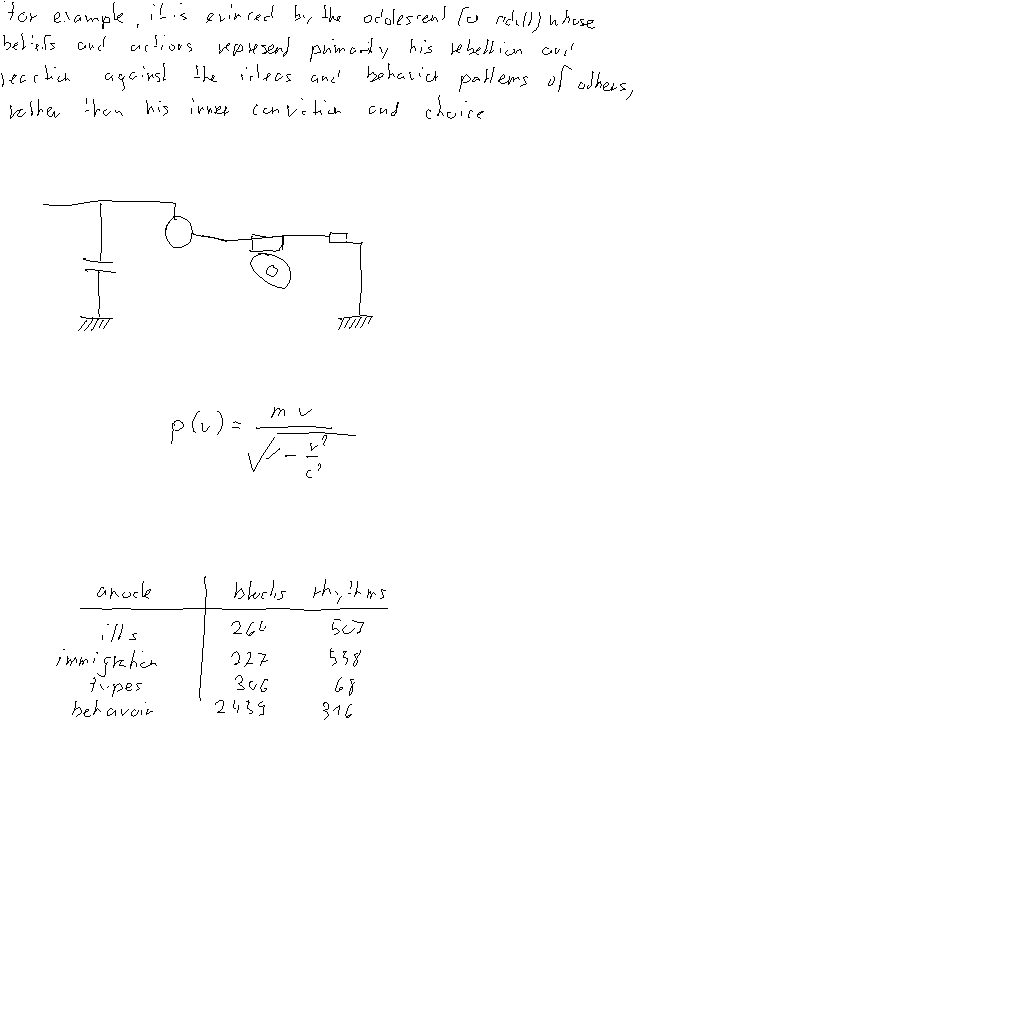 For example, it is evinced by the adolescent (or adult) whose
beliefs and actions represent primarily his rebellion and
reaction against the ideas and behavior patterns of others,
rather than his inner conviction and choice
p(v) = m v / √(1 - v²/c²)
anode blocks rhythms
ills 264 507
immigration 227 558
types 306 68
behavior 2439 316